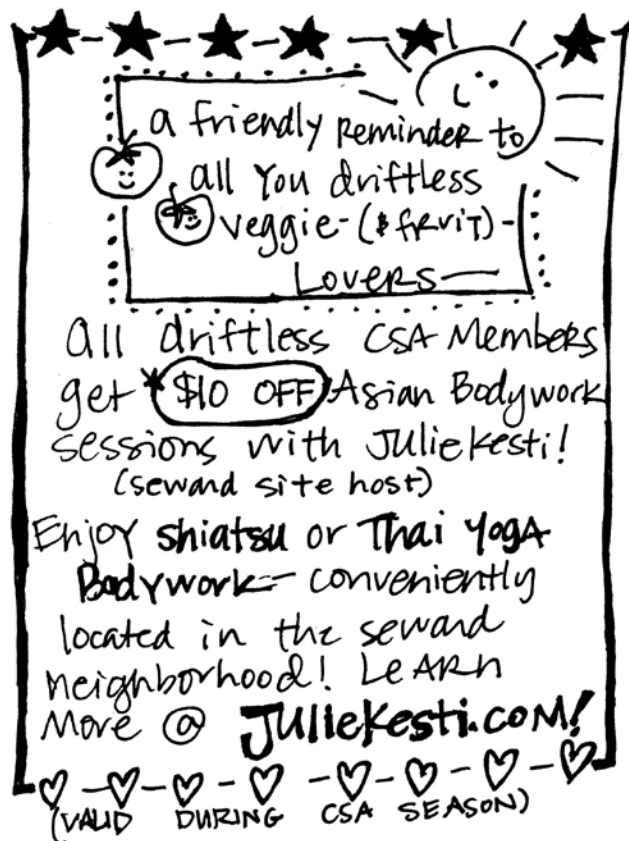 a friendly reminder to
all you driftless
veggie-($ fruit)-
Lovers—
all driftless CSA Members
get *$10 OFF Asian Bodywork
sessions with Julie Kesti!
(seward site host)
Enjoy shiatsu or Thai Yoga
Bodywork— conveniently
located in the seward
neighborhood! Learn
More @ JulieKesti.com!
(VALID DURING CSA SEASON)